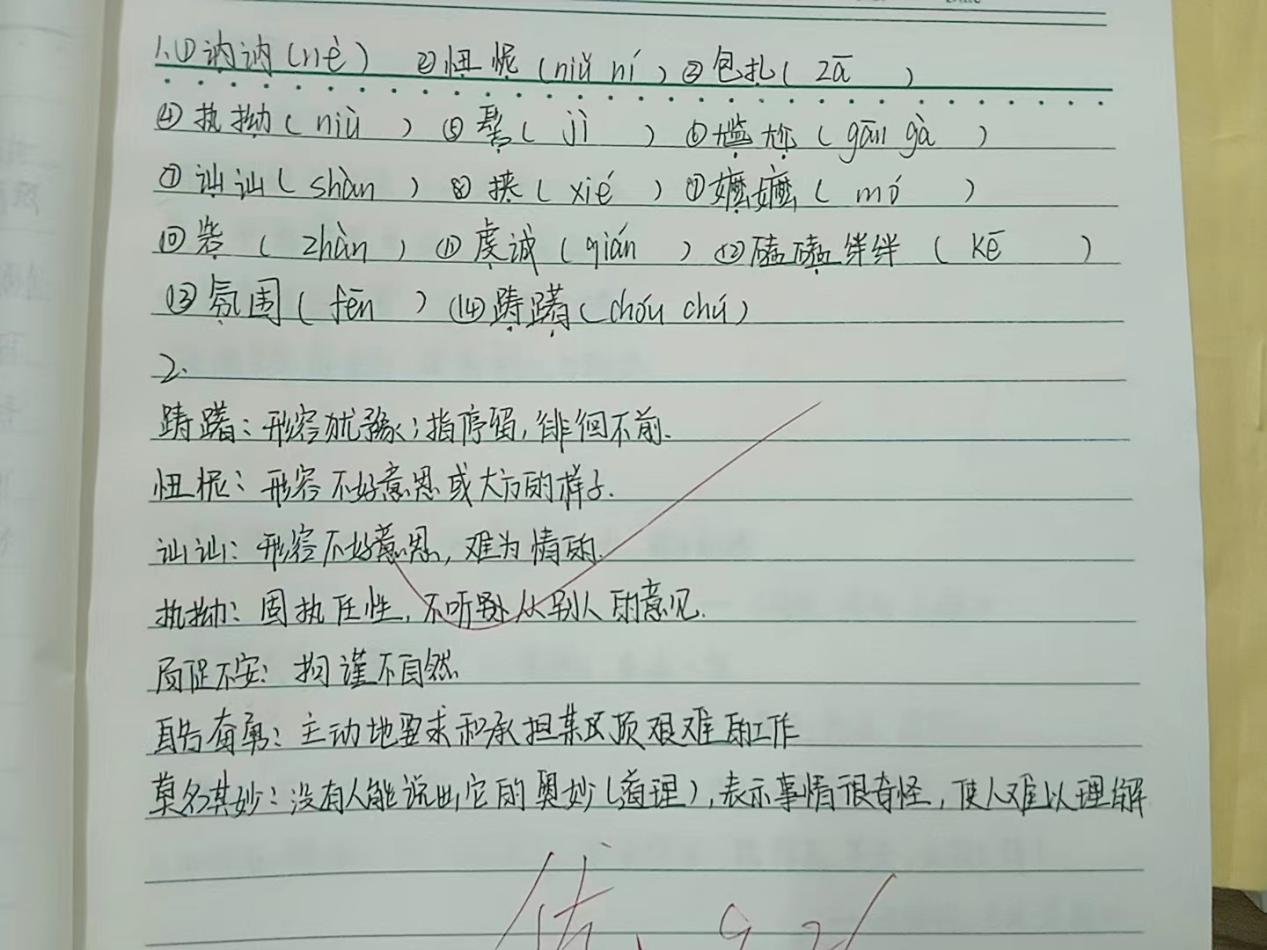 1.①讷讷(nè) ②忸怩(niǔ ní)③包扎(zā)
④执拗(niù)⑤髻(jì)⑥尴尬(gān gà)
⑦讪讪(shàn)⑧挟(xié)⑨嬷嬷(mó)
⑩砦(zhàn)⑪虔诚(qián)⑫磕磕绊绊(kē)
⑬氛围(fēn)⑭踌躇(chóu chú)
2.
踌躇:形容犹豫;指停留,徘徊不前.
忸怩:形容不好意思或大方的样子.
讪讪:形容不好意思,难为情的.
执拗:固执任性,不听从别人的意见.
局促不安:拘谨不自然
自告奋勇:主动地要求和承担某项艰难的工作
莫名其妙:没有人能说出它的奥妙(道理),表示事情很奇怪,使人难以理解